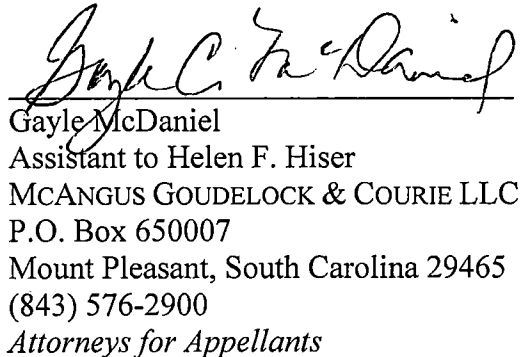 Gayle C. McDaniel
Gayle McDaniel
Assistant to Helen F. Hiser
MCANGUS GOUDELOCK & COURIE LLC
P.O. Box 650007
Mount Pleasant, South Carolina 29465
(843) 576-2900
Attorneys for Appellants